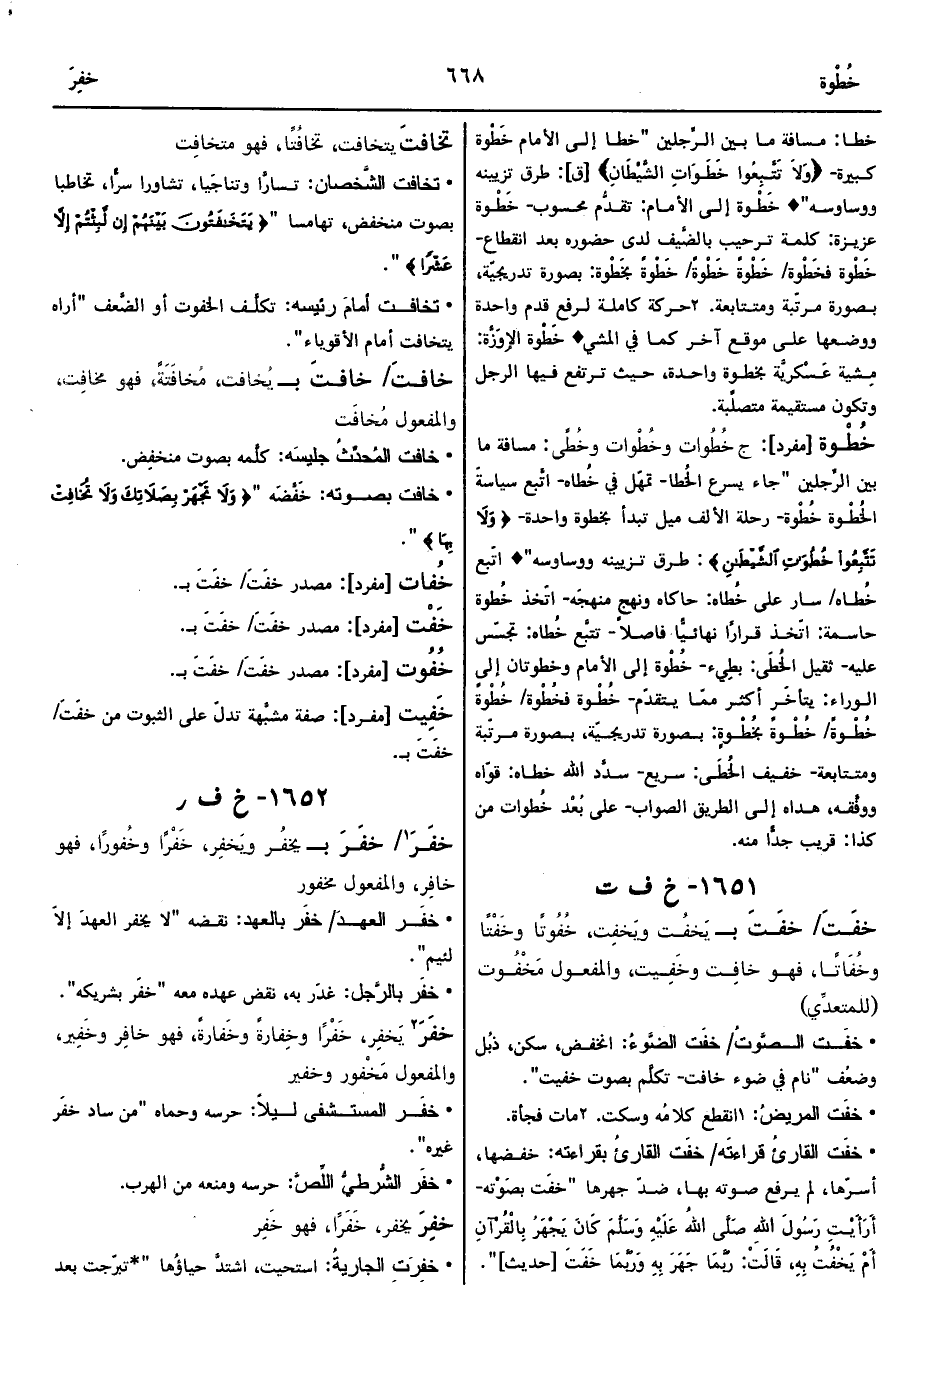 خُطْوة
٦٦٨
خفِرَ
خطا: مسافة ما بين الرِّجلين "خطا إلى الأمام خَطْوة
كبيرة- ﴿وَلاَ تَتَّبِعُوا خَطَوَاتِ الشَّيْطَانِ﴾ [ق]: طرق تزيينه
ووساوسه"♦ خَطْوة إلى الأمام: تقدُّم محسوب- خَطْوة
عزيزة: كلمة ترحيب بالضَّيف لدى حضوره بعد انقطاع-
خَطْوة فخَطْوة/ خَطْوةً خَطْوةً/ خَطْوةً بخَطْوة: بصورة تدريجيّة،
بصورة مرتّبة ومتتابعة. ٢حركة كاملة لرفع قدم واحدة
ووضعها على موقع آخر كما في المشي♦ خَطْوة الإوَزَّة:
مِشية عَسْكريَّة بخَطوة واحدة، حيث ترتفع فيها الرجل
وتكون مستقيمة متصلِّبة.
خُطْوة [مفرد]: ج خُطُوات وخُطْوات وخُطًى: مسافة ما
بين الرِّجلين "جاء يسرع الخُطا- تمهّل في خطاه- اتّبع سياسةَ
الخُطْوة خُطْوة- رحلة الألف ميل تبدأ بخطوة واحدة- ﴿وَلَا
تَتَّبِعُوا۟ خُطُوَٰتِ ٱلشَّيْطَٰنِ﴾: طرق تزيينه ووساوسه"♦ اتّبع
خُطاه/ سار على خُطاه: حاكاه ونهج منهجَه- اتّخذ خُطوة
حاسمة: اتّخذ قرارًا نهائيًّا فاصلاً- تتبَّع خُطاه: تجسّس
عليه- ثقيل الخُطَى: بطِيء- خُطْوة إلى الأمام وخطوتان إلى
الوراء: يتأخَر أكثر ممّا يتقدّم- خُطْوة فخُطْوة/ خُطْوةً
خُطْوةً/ خُطْوةً بخُطْوةٍ: بصورة تدريجيّة، بصورة مرتّبة
ومتتابعة- خفيف الخُطَى: سريع- سدَّد الله خطاه: قوّاه
ووفَّقه، هداه إلى الطريق الصواب- على بُعْد خُطوات من
كذا: قريب جدًّا منه.
١٦٥١- خ ف ت
خفَتَ/ خفَتَ بـ يَخفُت ويَخفِت، خُفُوتًا وخَفْتًا
وخُفَاتًا، فهو خافِت وخَفِيت، والمفعول مَخْفُوت
(للمتعدِّي)
• خفَت الصَّوتُ/ خفَت الضَّوءُ: انخفض، سكن، ذبُل
وضعُف "نام في ضوء خافت- تكلّم بصوت خفيت".
• خفَت المريضُ: ١انقطع كلامُه وسكت. ٢مات فجأة.
• خفَت القارئُ قراءتَه/ خفَت القارئُ بقراءته: خفضها،
أسرّها، لم يرفع صوته بها، ضدّ جهرها "خفَت بصَوْته-
أَرَأَيْتِ رَسُولَ اللهِ صَلَّى اللهُ عَلَيْهِ وَسَلَّمَ كَانَ يَجْهَرُ بِالْقُرْآنِ
أَمْ يَخْفُتُ بِهِ، قَالَتْ: رُبَّمَا جَهَرَ بِهِ وَرُبَّمَا خَفَتَ [حديث]".
تخافتَ يتخافت، تخافُتًا، فهو متخافِت
• تخافت الشَّخصان: تسارَّا وتناجَيا، تشاورا سرًّا، تخاطبا
بصوت منخفض، تهامسا "﴿يَتَخَٰفَتُونَ بَيْنَهُمْ إِن لَّبِثْتُمْ إِلَّا
عَشْرًا﴾".
• تخافت أمامَ رئيسه: تكلّف الخفوت أو الضَّعف "أراه
يتخافت أمام الأقوياء".
خافتَ/ خافتَ بـ يُخافت، مُخافَتَةً، فهو مخافِت،
والمفعول مُخافَت
• خافت المُحدِّثُ جليسَه: كلَّمه بصوت منخفِض.
• خافت بصوته: خَفَّضَه "﴿وَلَا تَجْهَرْ بِصَلَاتِكَ وَلَا تُخَافِتْ
بِهَا﴾".
خُفات [مفرد]: مصدر خفَتَ/ خفَتَ بـ.
خَفْت [مفرد]: مصدر خفَتَ/ خفَتَ بـ.
خُفُوت [مفرد]: مصدر خفَتَ/ خفَتَ بـ.
خَفِيت [مفرد]: صفة مشبَّهة تدلّ على الثبوت من خفَتَ/
خفَتَ بـ.
١٦٥٢- خ ف ر
خفَرَ١/ خفَرَ بـ يخفُر ويَخفِر، خَفْرًا وخُفورًا، فهو
خافِر، والمفعول مخفور
• خفَر العهدَ/ خفَر بالعهد: نقضه "لا يخفر العهدَ إلاّ
لئيم".
• خفَر بالرَّجل: غدَر به، نقض عهده معه "خفَر بشريكه".
خفَرَ٢ يَخفِر، خَفْرًا وخِفارةً وخَفارةً، فهو خافِر وخَفِير،
والمفعول مَخْفور وخفير
• خفَر المستشفى ليلاً: حرسه وحماه "من ساد خفَر
غيره".
• خفَر الشُّرطيُّ اللِّصَّ: حرسه ومنعه من الهرب.
خفِرَ يخفر، خَفَرًا، فهو خَفِر
• خفِرَتِ الجاريةُ: استحيت، اشتدَّ حياؤُها "*تبرّجت بعد